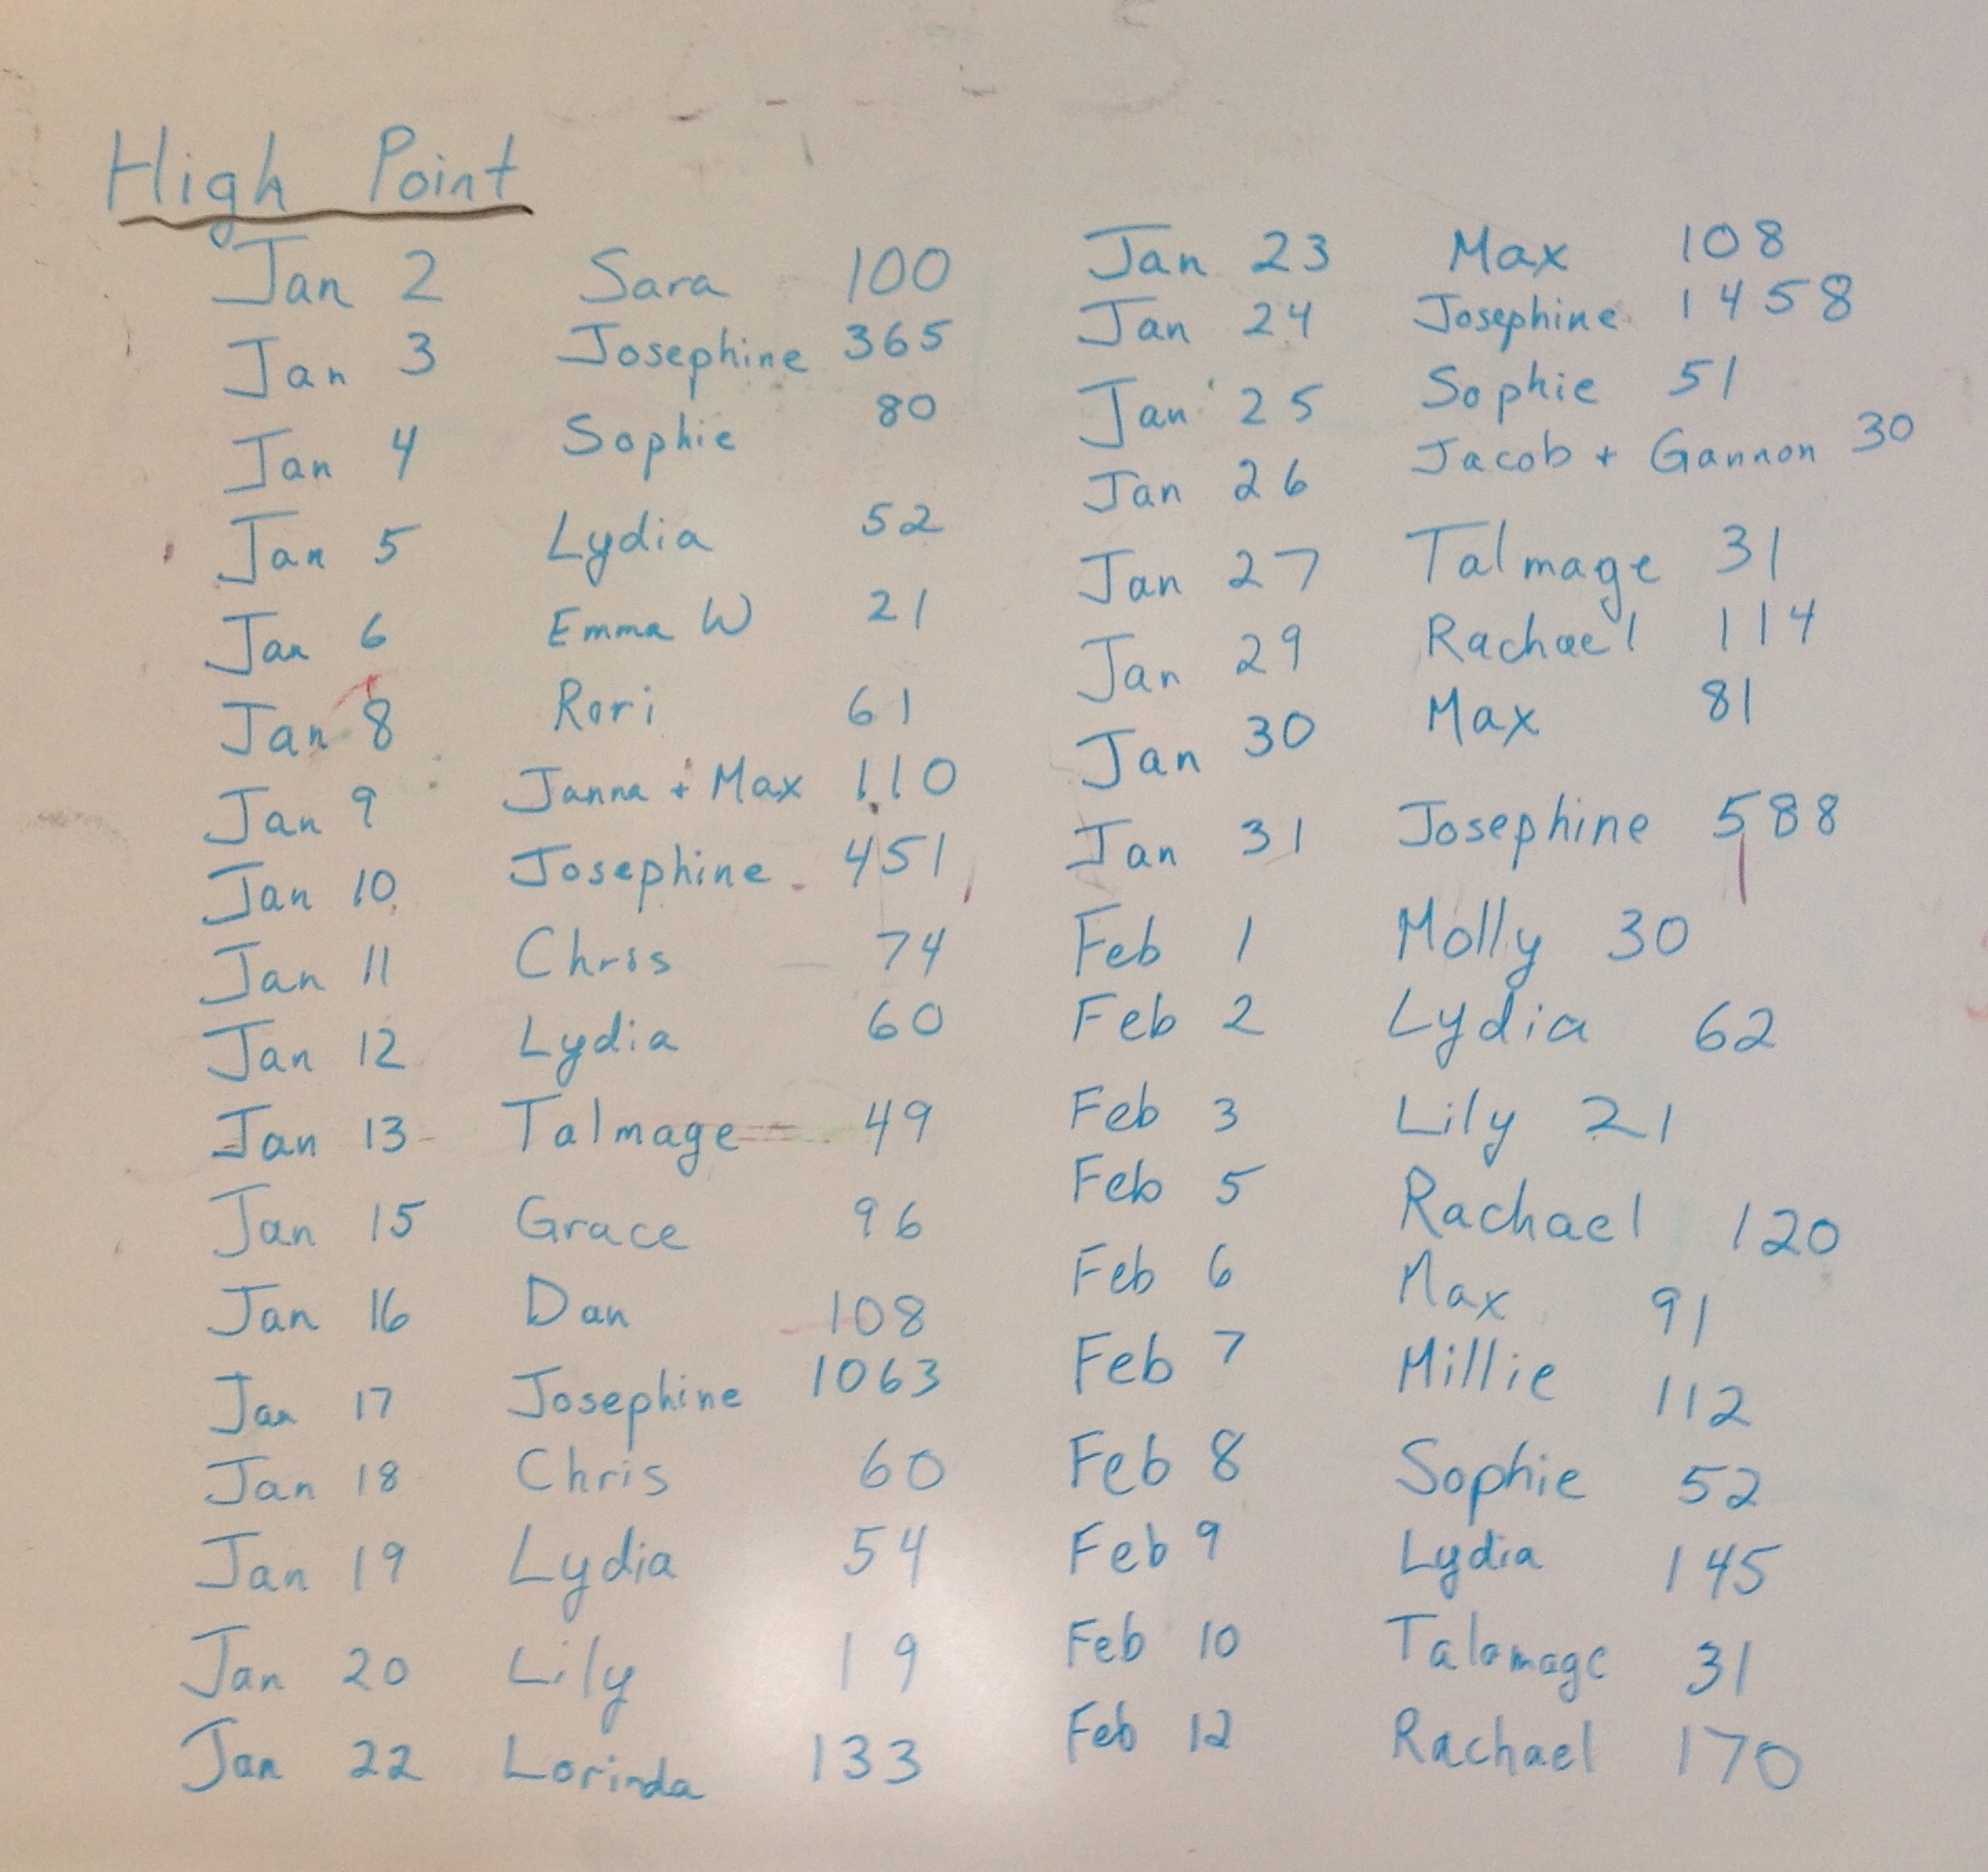 High Point
Jan 2 Sara 100
Jan 3 Josephine 365
Jan 4 Sophie 80
Jan 5 Lydia 52
Jan 6 Emma W 21
Jan 8 Rori 61
Jan 9 Janna + Max 110
Jan 10 Josephine 451
Jan 11 Chris 74
Jan 12 Lydia 60
Jan 13 Talmage 49
Jan 15 Grace 96
Jan 16 Dan 108
Jan 17 Josephine 1063
Jan 18 Chris 60
Jan 19 Lydia 54
Jan 20 Lily 19
Jan 22 Lorinda 133
Jan 23 Max 108
Jan 24 Josephine 1458
Jan 25 Sophie 51
Jan 26 Jacob + Gannon 30
Jan 27 Talmage 31
Jan 29 Rachael 114
Jan 30 Max 81
Jan 31 Josephine 588
Feb 1 Molly 30
Feb 2 Lydia 62
Feb 3 Lily 21
Feb 5 Rachael 120
Feb 6 Max 91
Feb 7 Millie 112
Feb 8 Sophie 52
Feb 9 Lydia 145
Feb 10 Talamage 31
Feb 12 Rachael 170